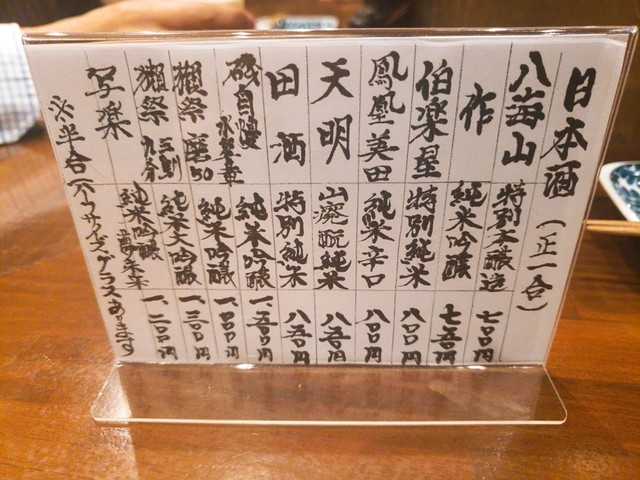 日本酒（正一合）
八海山 特別本醸造 七〇〇円
作 純米吟醸 七五〇円
伯楽星 特別純米 八〇〇円
鳳凰美田 純米辛口 八〇〇円
天明 山廃純米 八五〇円
田酒 特別純米 八五〇円
磯自慢 純米吟醸 一、五〇〇円
獺祭 磨50 純米吟醸 一、〇〇〇円
獺祭 三割九分 純米大吟醸 一、三〇〇円
写楽 純米吟醸 一、二〇〇円
※半合（ハーフサイズ）グラスあります